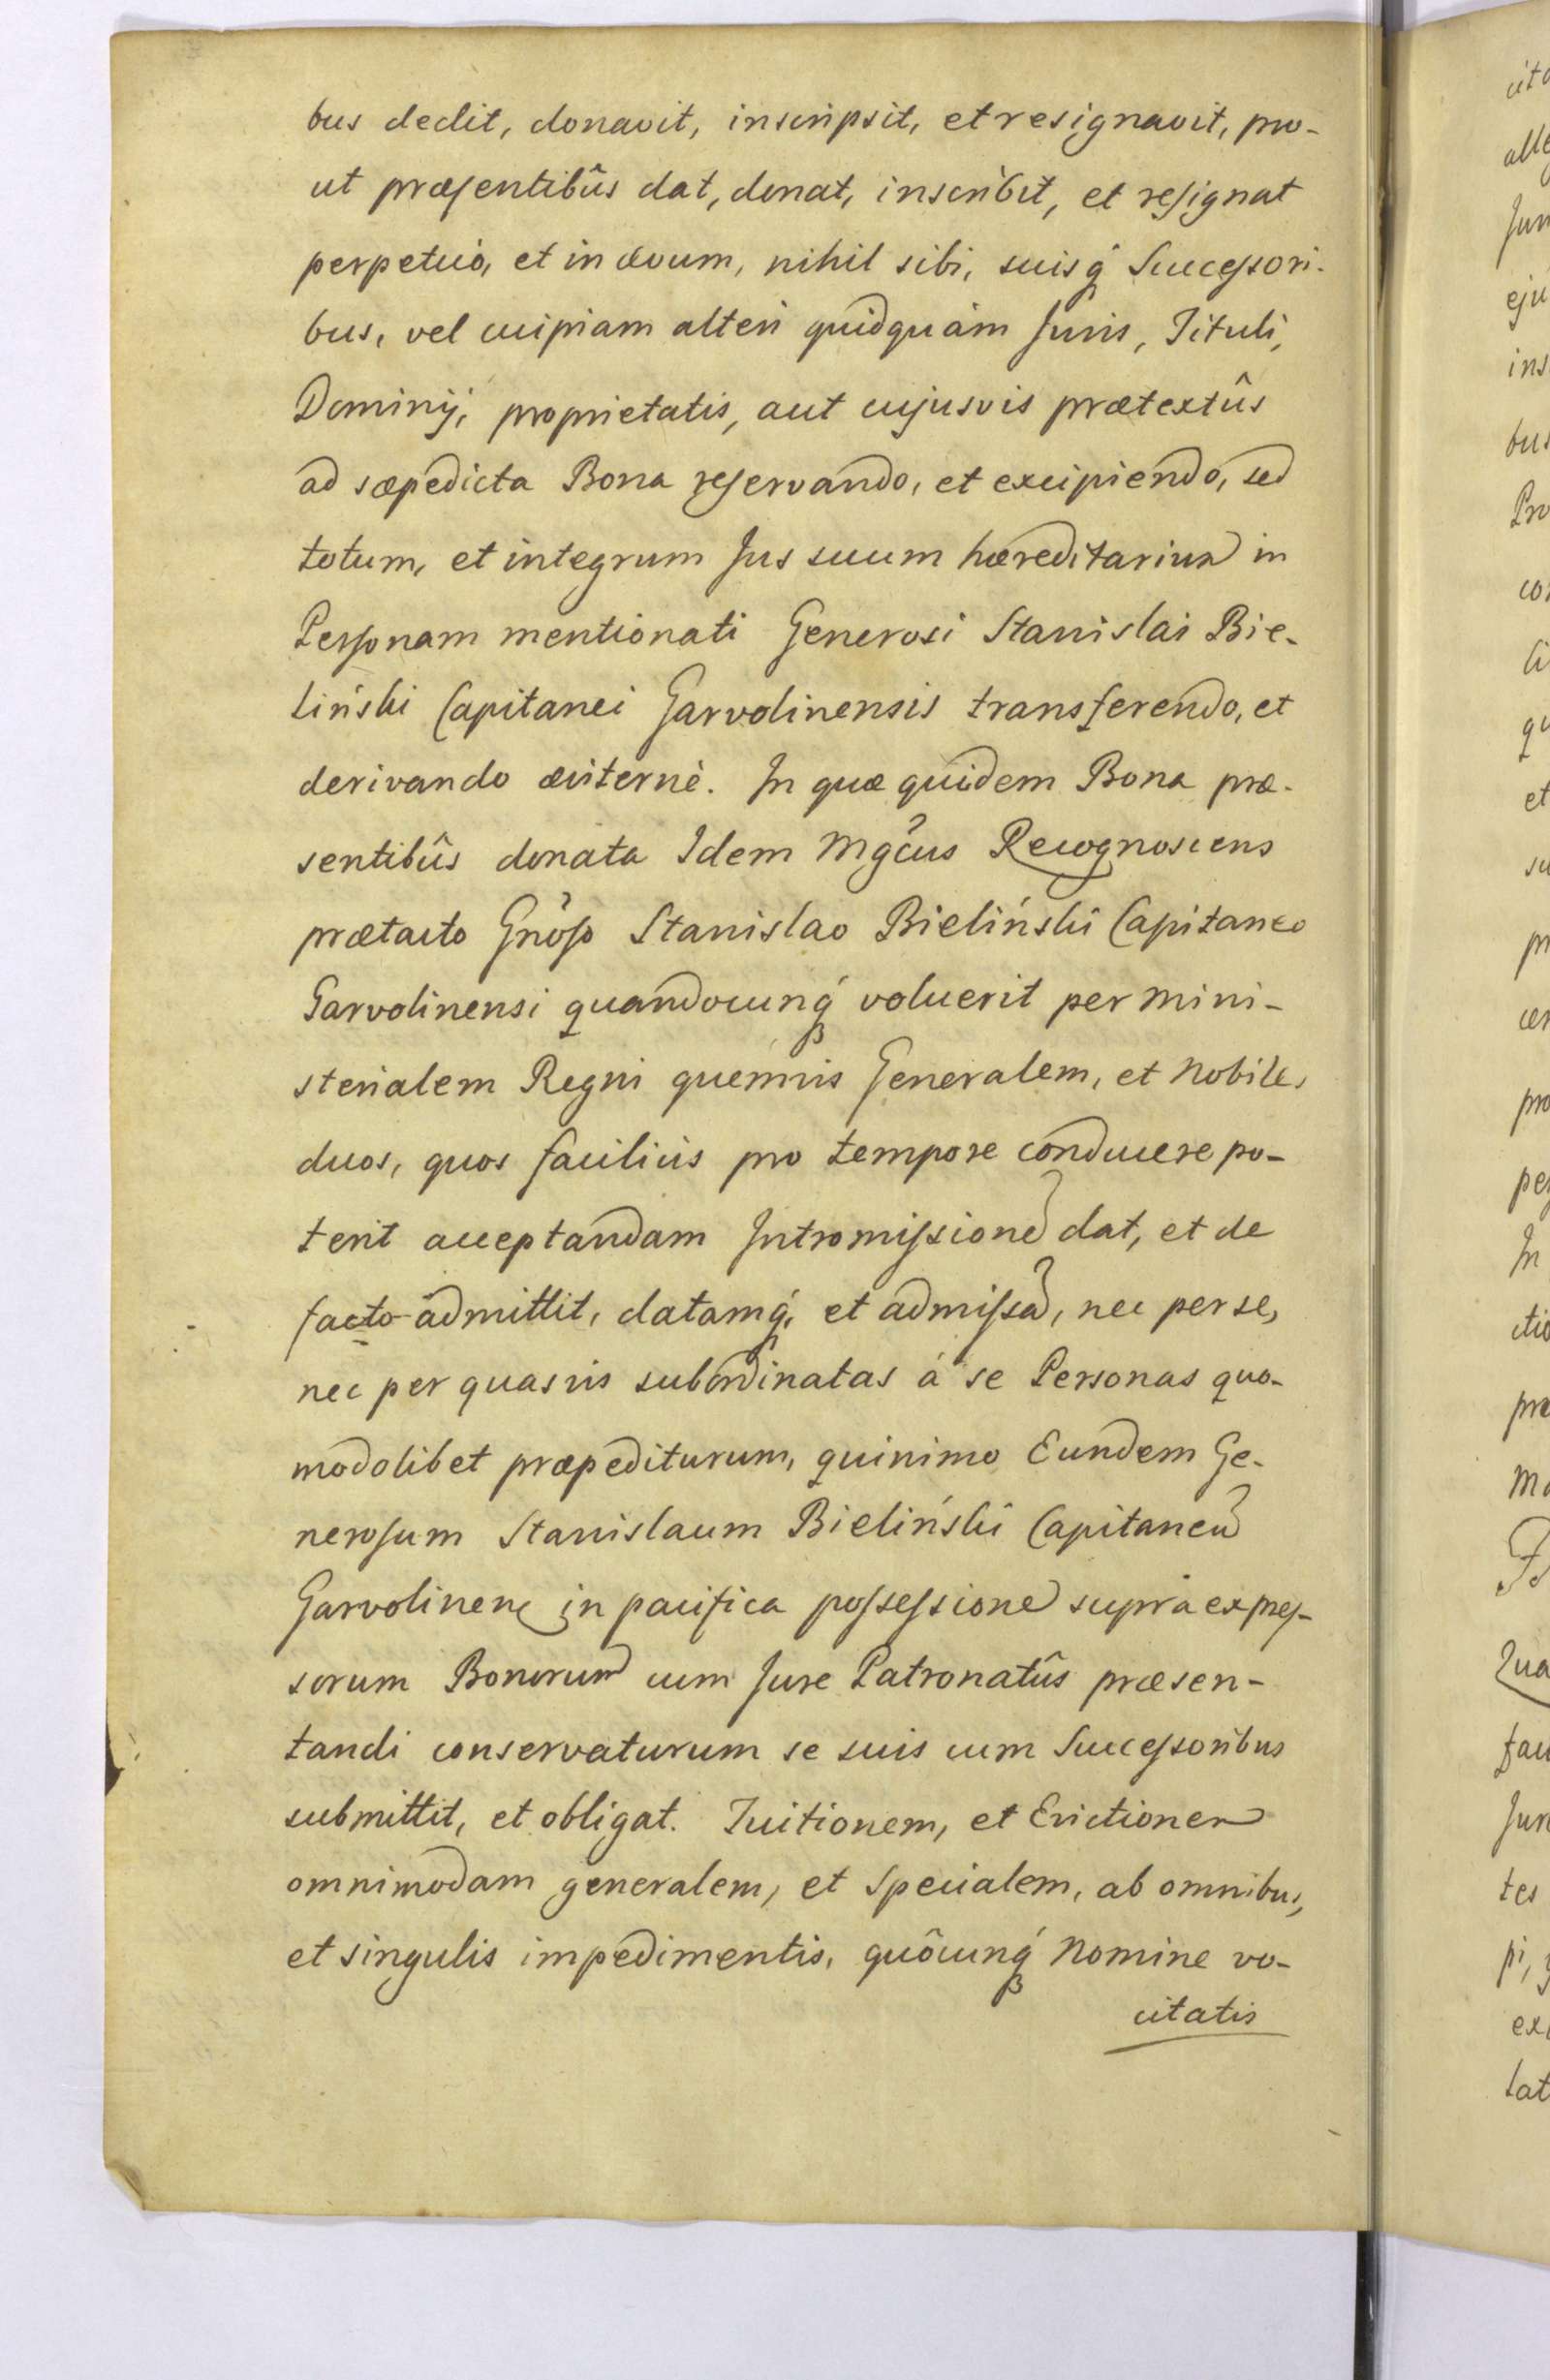 bus dedit, donavit, inscripsit, et resignavit, pro-
ut præsentibûs dat, donat, inscribit, et resignat
perpetuò, et in ævum, nihil sibi, suisq́ Successori-
bus, vel cuipiam alteri quidquàm Juris, Tituli,
Dominij, proprietatis, aut cujusvis prætextûs
ad sæpedicta Bona reservando, et excipiendo, sed
totum, et integrum Jus suum hæreditarium in
Personam mentionati Generosi Stanislai Bie-
liński Capitanei Garvolinensis transferendo, et
derivando æviternè. In quæ quidem Bona præ-
sentibûs donata Idem Mgcus Recognoscens
prætacto Gnoso Stanislao Bieliński Capitaneo
Garvolinensi quandocunq́ voluerit per Mini-
sterialem Regni quemvis Generalem, et Nobiles
duos, quos faciliùs pro tempore conducere po-
terit acceptandam Intromissionem dat, et de
facto admittit, datamq́, et admissam, nec per se,
nec per quasvis subordinatas á se Personas quo-
modolibet præpediturum, quinimo Eundem Ge-
nerosum Stanislaum Bieliński Capitaneum
Garvolinen in pacifica possessione suprà expres-
sorum Bonorum cum Jure Patronatûs præsen-
tandi conservaturum se suis cum Successoribus
submittit, et obligat. Tuitionem, et Evictionem
omnimodam generalem, et specialem, ab omnibus,
et singulis impedimentis, quôcunq́ Nomine vo-
citatis